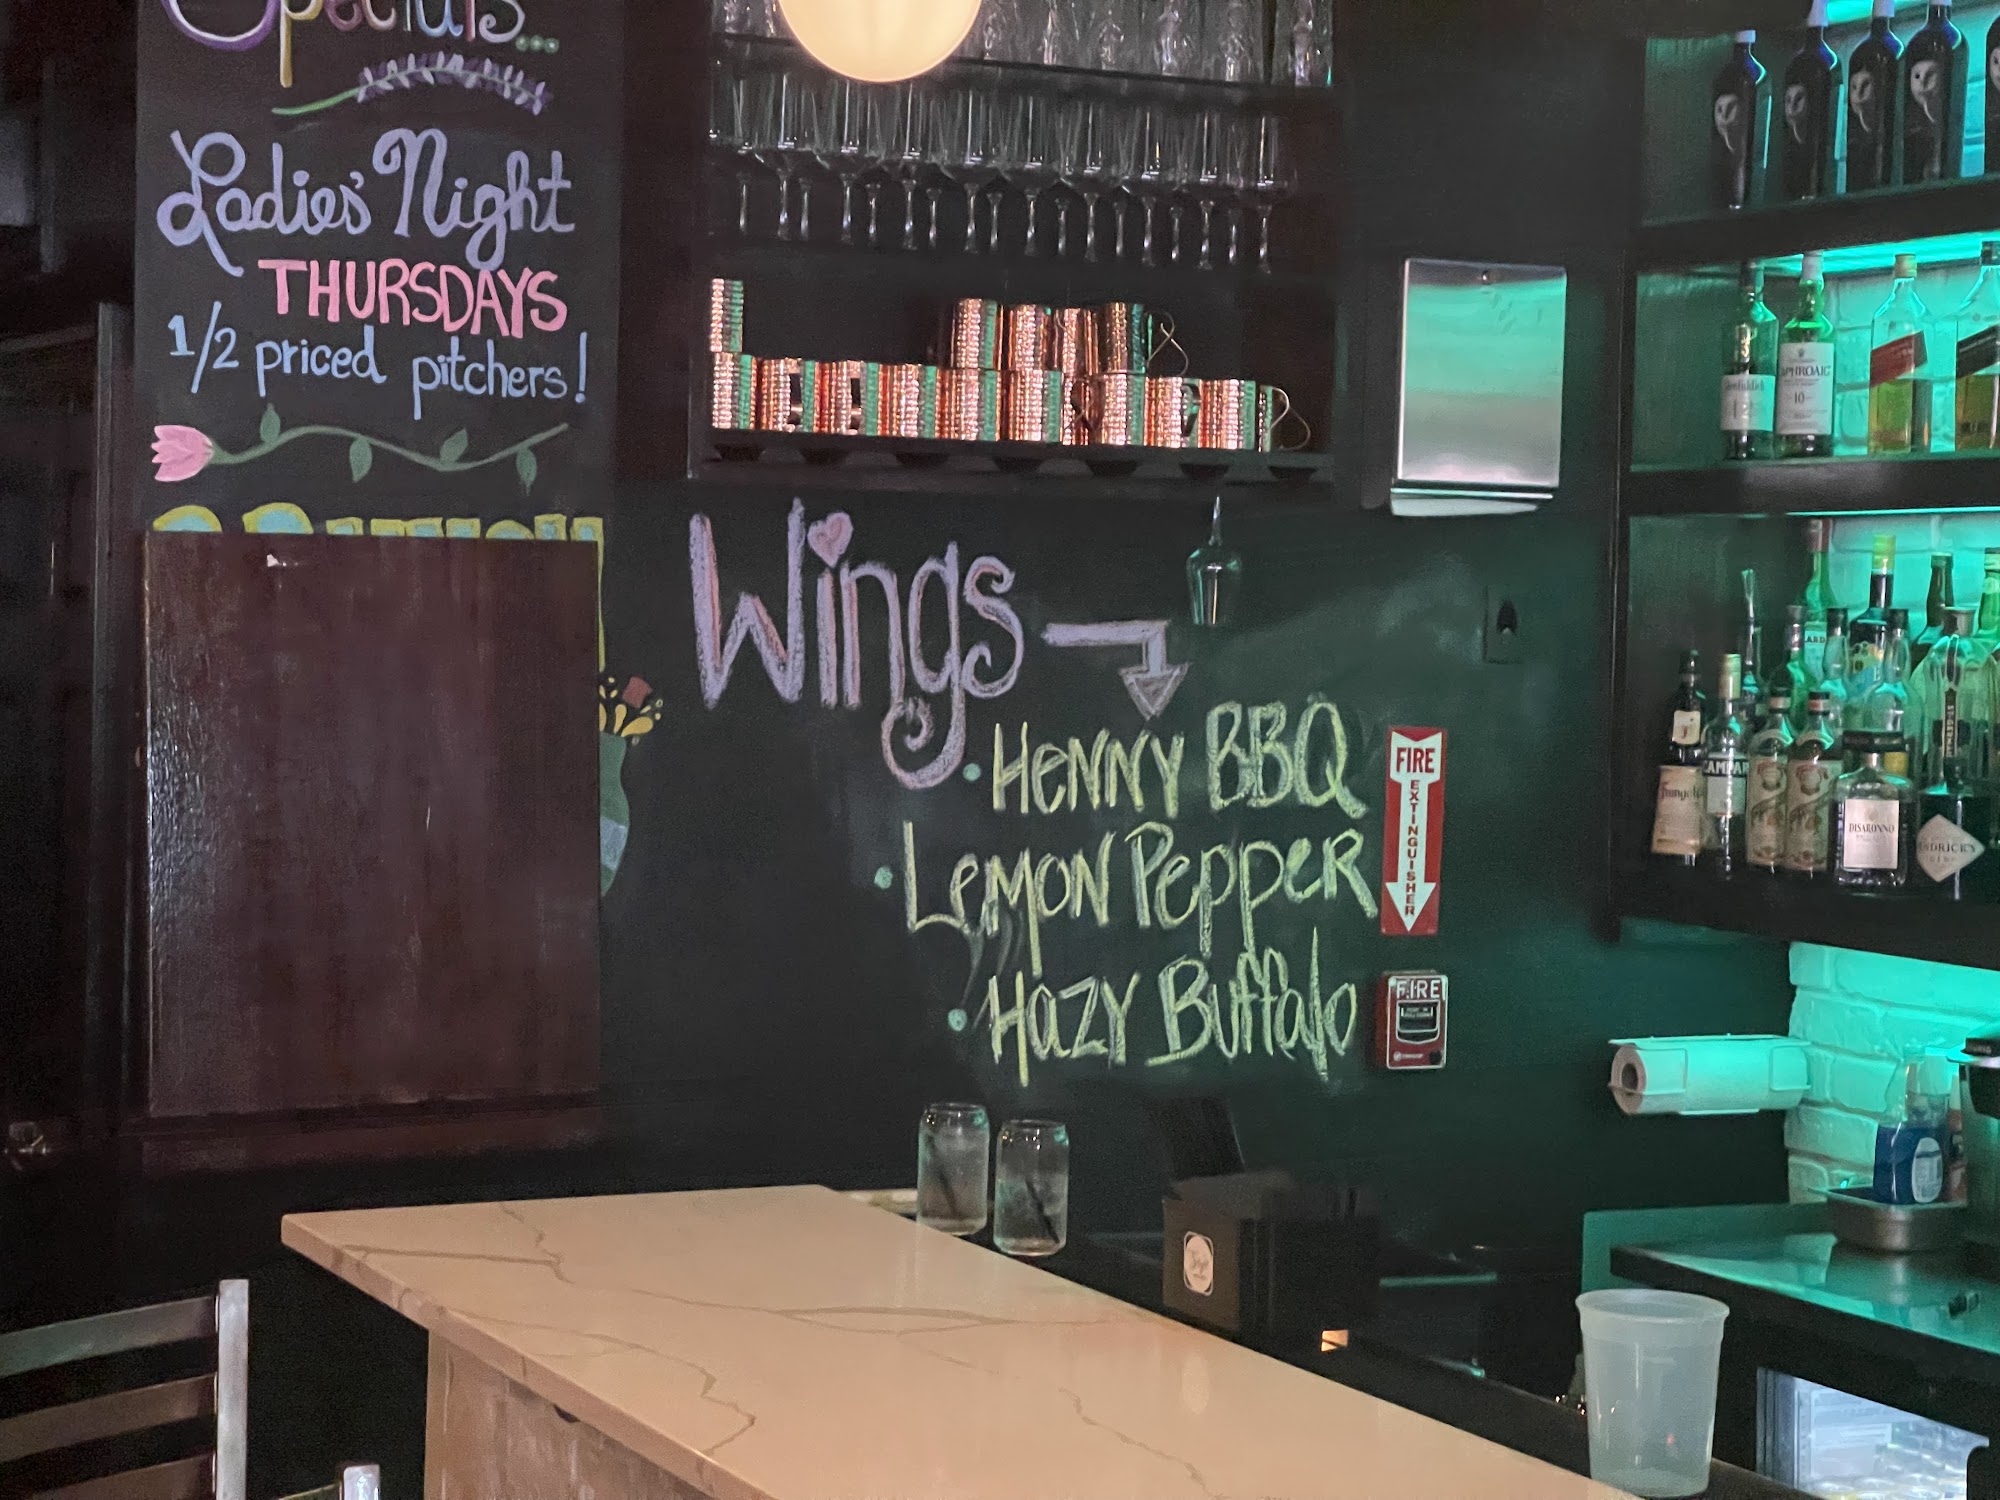 Specials...
Ladies' Night
THURSDAYS
1/2 priced pitchers!
Wings
• HENNY BBQ
• LEMON PEPPER
• HAZY BUFFALO
FIRE
EXTINGUISHER
FIRE
Glenfiddich
LAPHROAIG
10
CAMPARI
DISARONNO
HENDRICK'S
GIN